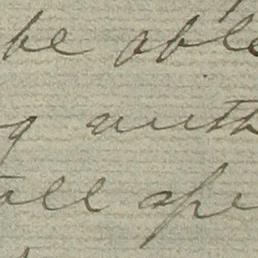 be able
g auth
all spe